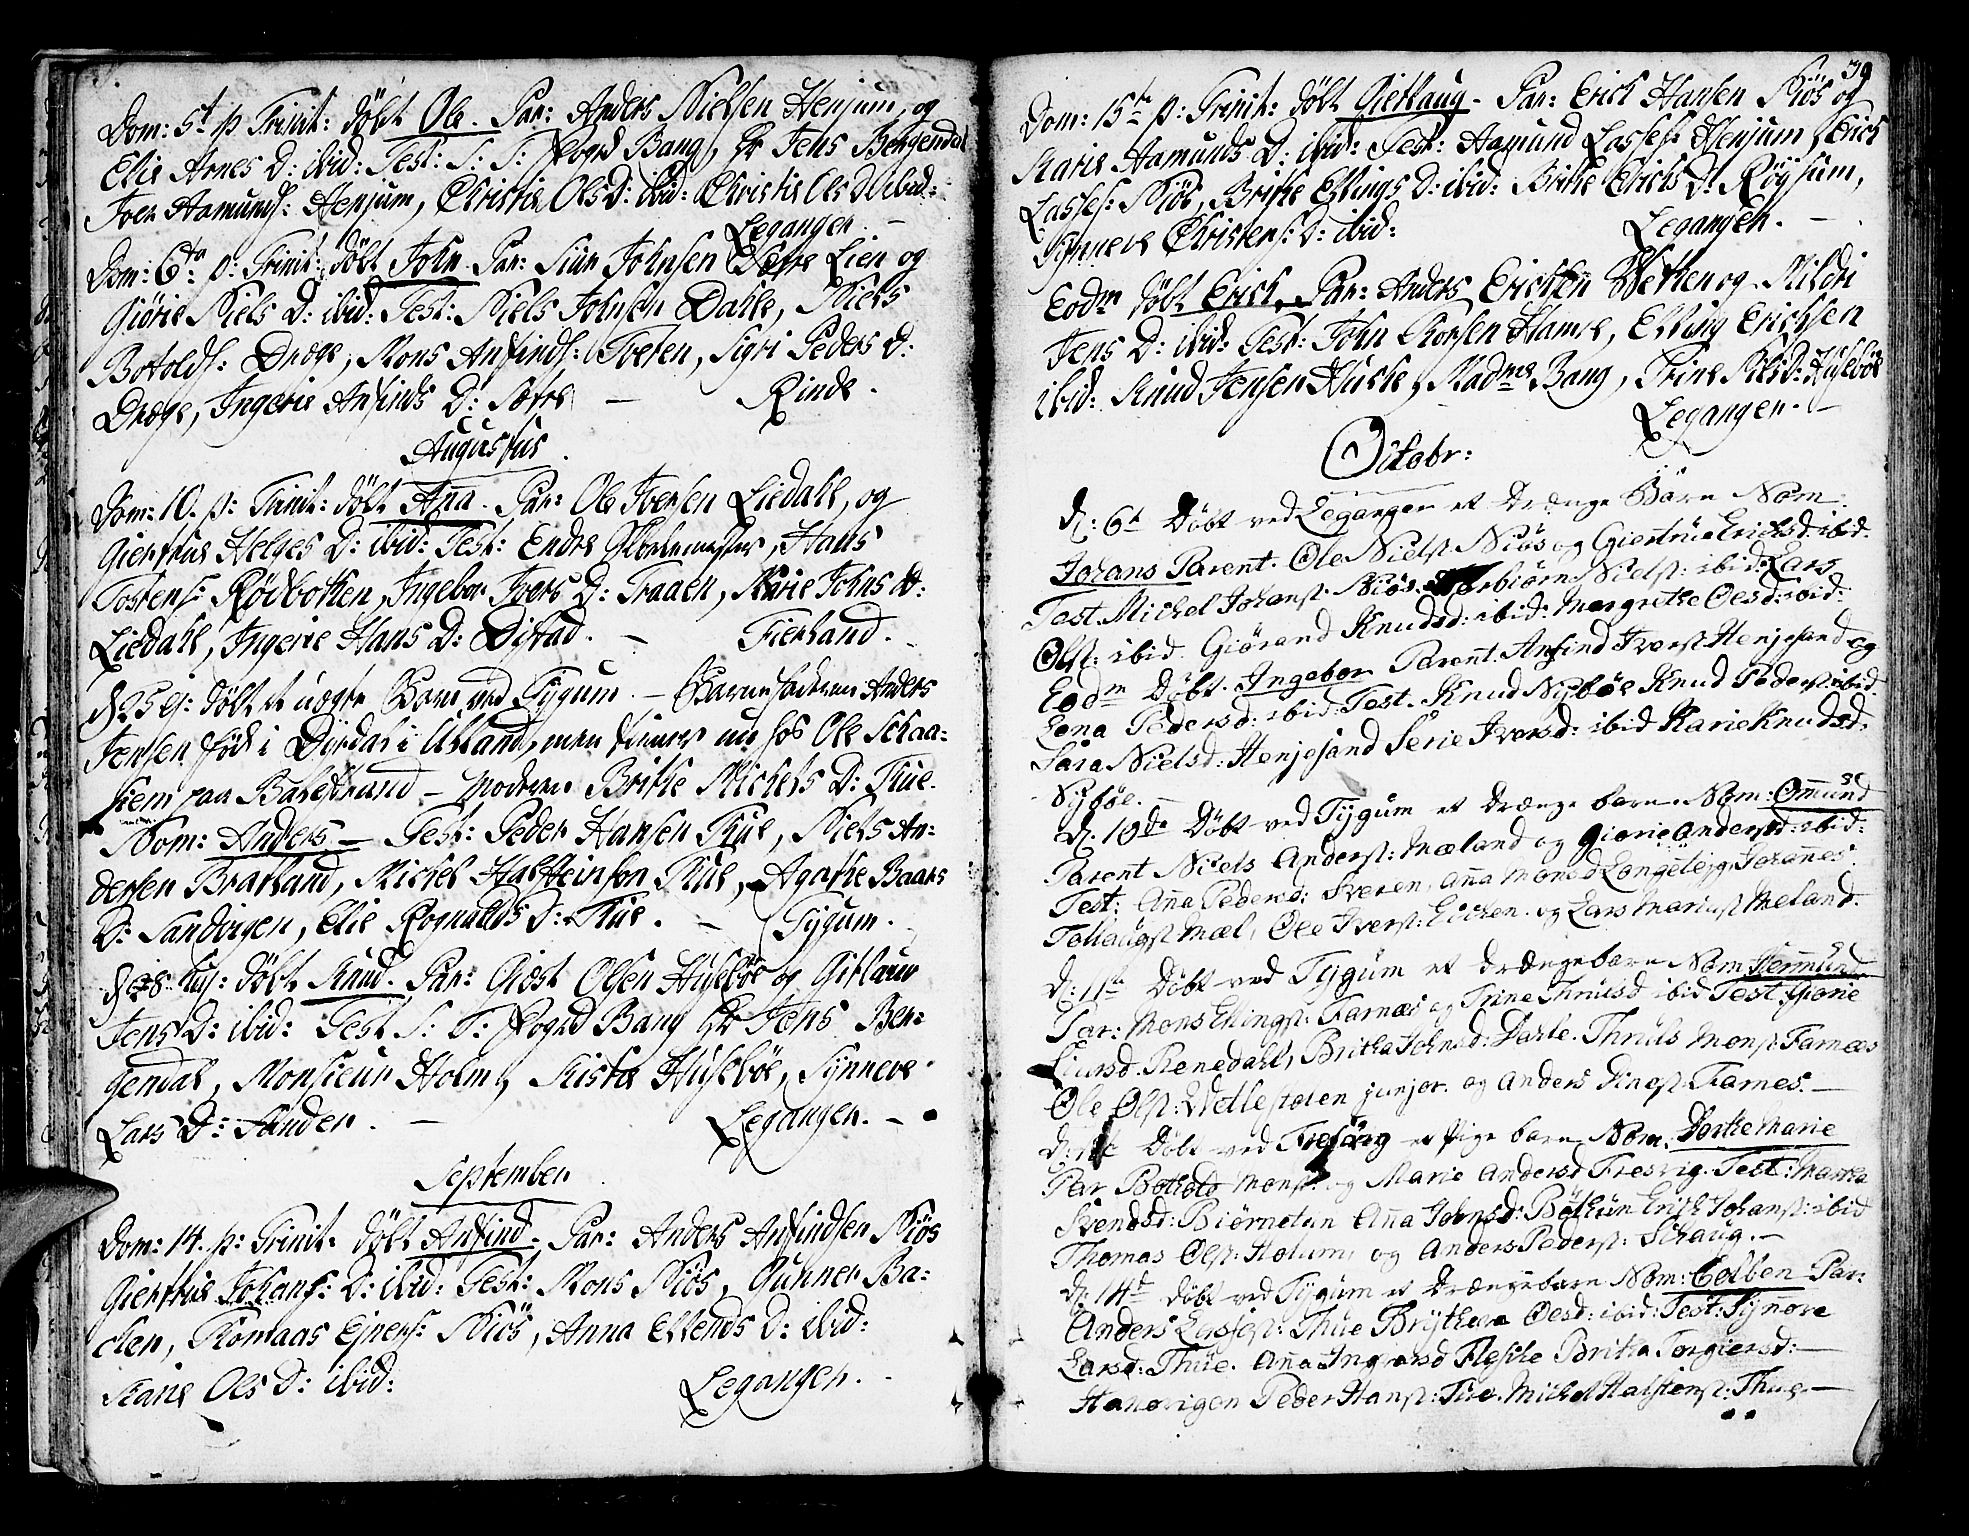 Dom: 5t p Trinit: döbt Ole. Par: Anders Nielsen Henjum, og
Elie Arnes D: ibid: Test: S: T: Fogd Bang, Hr Jens Bergendal
Joen Aamunds: Henjum, Christie Ols D: ibid: Christie Ols D: ibid:
Legangen. -
Dom: 6ta p: Trinit: döbt John. Par: Siur Johnsen Lien og
Giörie Niels D: ibid: Test: Niels Johnsen Dahle, Niels
Botolds: Dræge, Mons Anfinds: Tveren, Sigri Peders D:
Dræge, Ingerie Anfinds D: Sætre - Rinde.
Augustus.
Dom: 10. p: Trinit: döbt Aña. Par: Ole Iversen Liedahl, og
Giertrue Helges D: ibid: Test: Endre, Hans
Tostens: Rödbotten, Ingebor Ivers D: Traaen, Marie Johns D:
Liedahl, Ingerie Hans D: Distad. - Fierland.
d 25 ej: döbt et uægte Barn ved Tygum. - Barnefaderen Anders
Jensen föd i Dördal i Ulland, men tiener nu hos Ole Schaa-
siem paa Balestrand - Moderen Brithe Michels D: Tue.
Nom: Anders - Test: Peder Hansen Tue, Niels An-
dersen Brarland, Michel Halsteinsen Tue, Agathe Baars
D: Sandvigen, Elie Rognalds D: Tue. - Tygum.
d 28 huj: döbt Knud. Par: Giest Olsen Huseböe og Gitlaur
Jens D: ibid: Test S: T: Fogd Bang Hr Jens Ber-
gendal, Monsieur Holm, Kista Huseböe, Synneve
Lars D: Sander. - Legangen. -
September
Dom: 14. p: Trinit: döbt Anfind. Par: Anders Anfindsen Niös
Giertrue Johans: D: ibid: Test: Mons Niös, Gunner Ba-
chen, Thomaas Ivers: Niös, Anna Ellends D: ibid:
Karie Ols D: ibid: Legangen. -
39
Dom: 15te p: Trinit: döbt Gietlaug. Par: Erich Hansen Niös og
Marie Aamunds D: ibid: Test: Aamund Lasses: Henjum, Erich
Lasses: Niös, Brithe Ellings D: ibid: Brithe Erichs D: Röysum,
Synneve Christens: D: ibid: Legangen. -
Eodm döbt Erich. Par: Anders Erichsen Wetten og Mildri
Jens D: ibid: Test: John Thorsen Hamre, Elling Erichsen
ibid: Knud Jensen Husle, Madme Bang, Trine Nilsd: Huseböe
Legangen. -
Octobr:
d: 6t Döbt ved Legangen et drænge Barn Nom:
Johans Parent. Ole Niels: Niös og Giertrüe Erichsd: ibid.
Test. Michel Johans: Niös. Torbiörn Niels: ibid: Lars
Ols: ibid. Giörend Knudsd: ibid: Margrethe Olsd: ibid:
Eodm Döbt. Ingebor Parent. Anfind Ivers: Henjesand og
Lona Pedersd: ibid: Test. Knud Nyböe Knud Peders: ibid.
Sara Nielsd: Henjesand Serie Iversd: ibid Karie Knudsd.
Nyböe. -
d: 10de Döbt ved Tygum et drænge barn Nom: Omund
Parent Niels Anders: Mæland og Giorie Andersd: ibid:
Test: Aña Pedersd: Sveren, Aña Monsd Longeteig, Johannes
Tollaugs: Mæl, Ole Ivers: Eichen og Lars Marius: Meland.
d: 11te Döbt ved Tygum et drængebarn Nom: Hermund
Par: Mons Ellings: Farnæs og Trine Thrulsd ibid Test: Giorie
Siursd. Renedahl, Britha Johnsd: Dahle. Thruls Mons: Farnæs
Ole Ols: Wetlestolen junjor. og Anders Fines: Farnes. -
d: Döbt ved Fresvig et Pige barn Nom: Dorthe Marie
Par Bothold Mons: og Marie Andersd Fresvig. Test: Martha
Svendsd: Biörnetun Aña Johnsd: Böthun Erich Johans: ibid
Thomas Ols: Holum, og Anders Peders: Schaug. -
d: 14de döbt ved Tygum et drængebarn Nom: Colben Par:
Anders Lasses: Thue Brythena Olsd: ibid: Test: Synnøve
Larsd: Thüe. Aña Ingvarsd Flesche Britha Torgiersd: -
Hanevigen Peder Hans: Tue. Michel Halstens: Thue. -